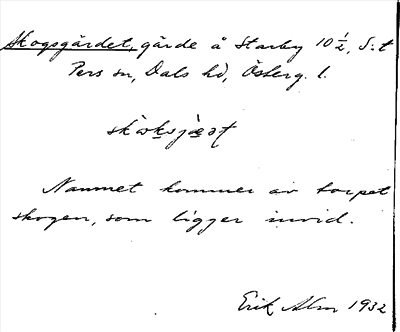 Skogsgärdet, gärde å Starby 10 ½, S:t
Pers sn, Dals hd, Österg. l.
Namnet kommer av torpet
skogen, som ligger invid.
Erik Alm 1932